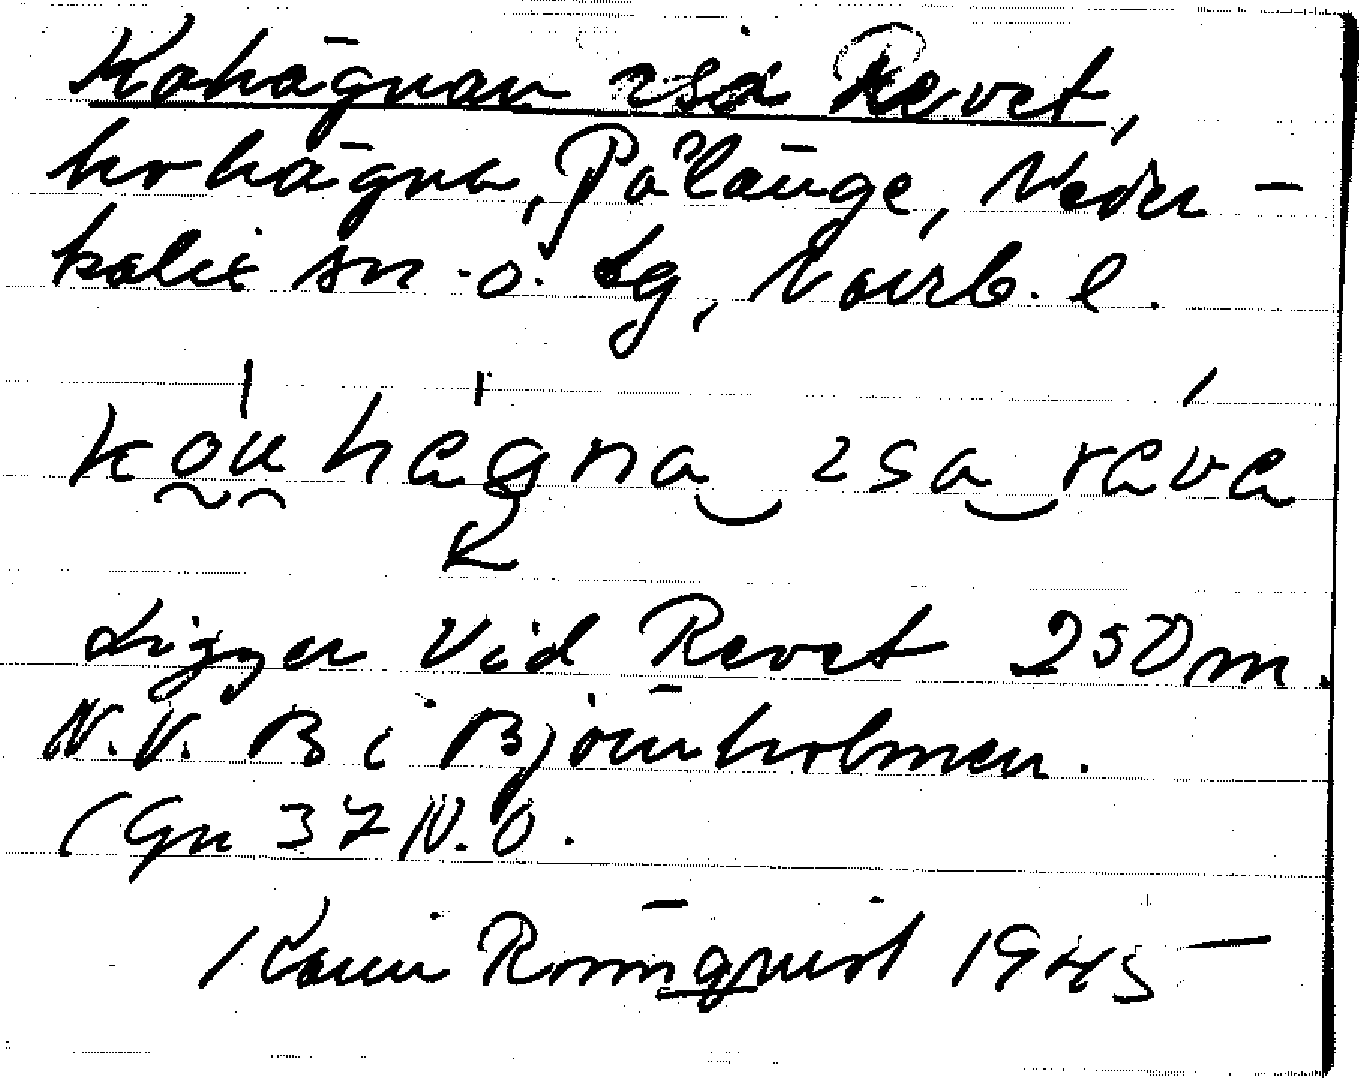 Kohägnan vsa Revet,
kohägna, Pålänge, Neder-
kalix sn. o. tg, Norrb. l.
Ligger vid Revet 250 m.
N.V. B i Björnholmen.
(Gn 37 N.O.
Karin Rönnqvist 1945